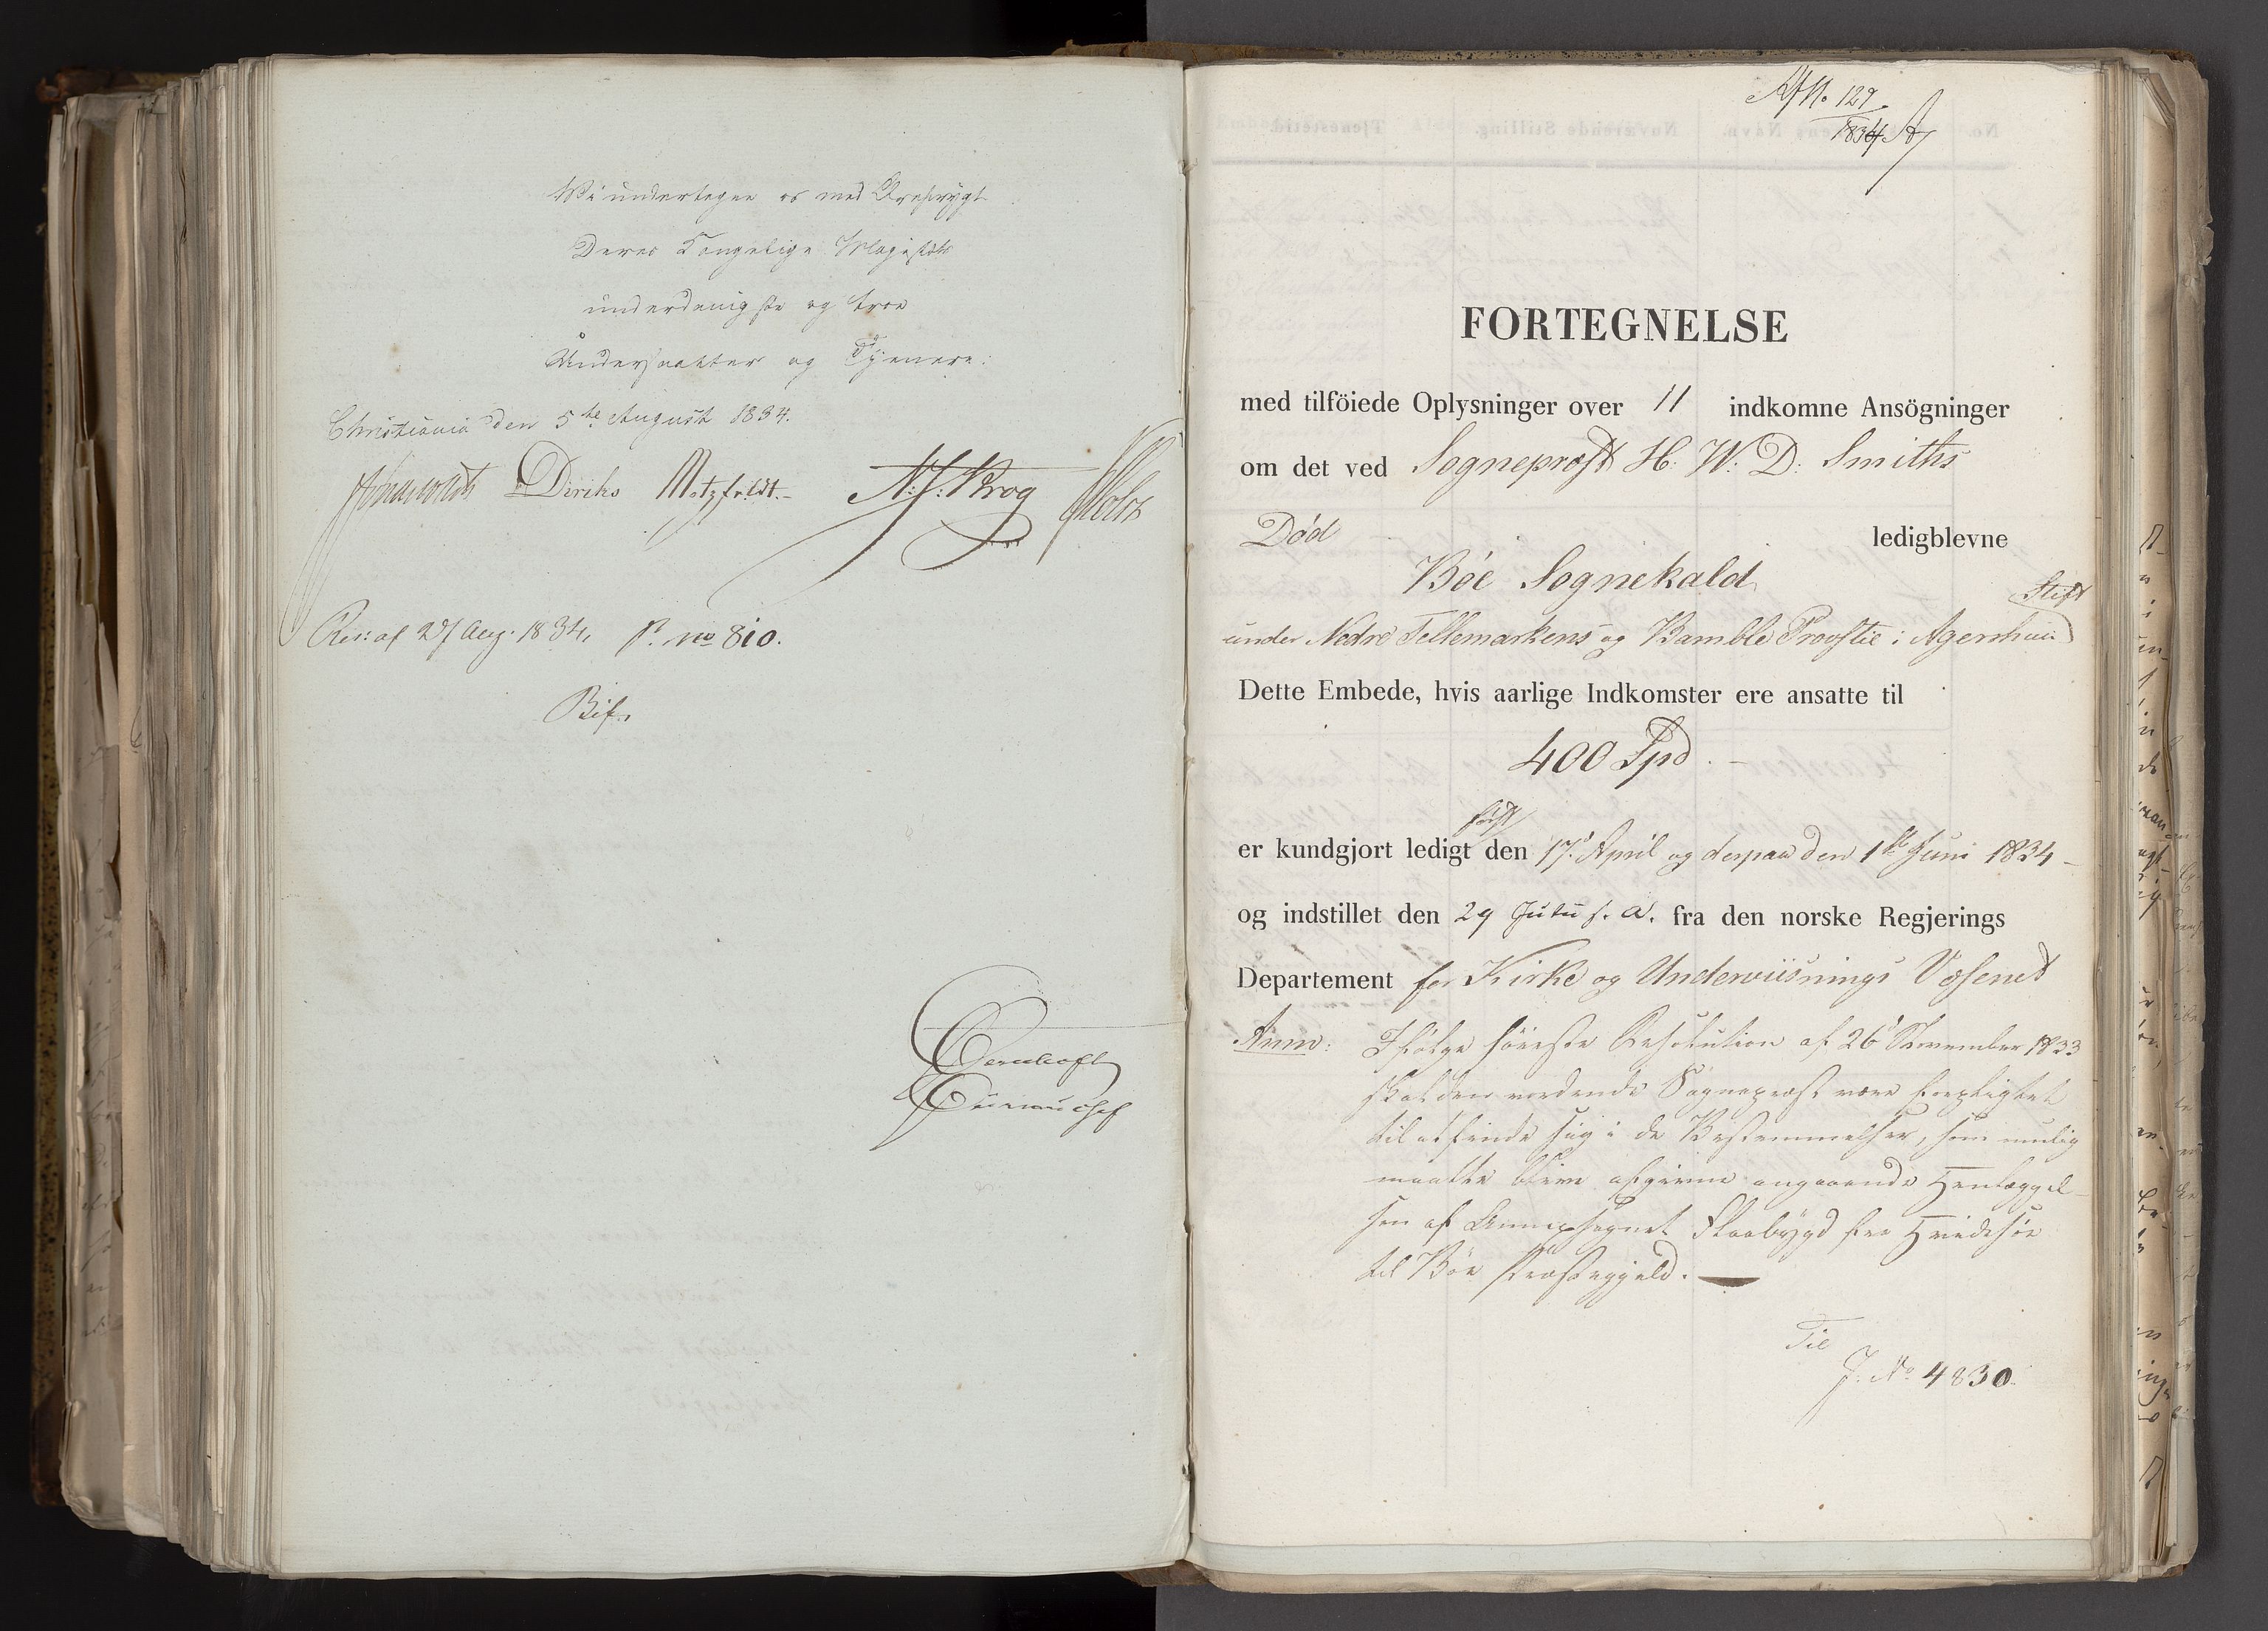 Vi undertegne os med Ærefrygt
Deres Kongelige Majestæts
underdanigste og troe
Undersaatter og Tjenere:
Christiania den 5te August 1834.
Diriks Motzfeldt.- N: J: Krog Holst
Res: af 27 Aug. 1834, P. No 810.
Bif.
Bureauchef
Afl. No 129
1834
FORTEGNELSE
med tilföiede Oplysninger over 11 indkomne Ansögninger
om det ved Sogneprest H. W: D: Smiths
Död ledigblevne
Böe Sognekald
Stift
under Nedre Tellemarkens og Bamble Provstie i Agershuus
Dette Embede, hvis aarlige Indkomster ere ansatte til
400 Spd. -
først
er kundgjort ledigt den 17d April og derpaa den 1ste Juni 1834 -
og indstillet den 29 Juli s. A. fra den norske Regjerings
Departement for Kirke og Underviisnings Væsenet
Anm: Ifölge höieste Resolution af 26d November 1833
skal den vordende Sogneprest være forpligtet
til at finde sig i de Bestemmelser, som muligt
maatte blive afgivne angaaende Henlæggel-
sen af Annexsognet Flaabygd fra Hvidesöe
til Böe Præstegjeld. -
Til
J. No 4830.